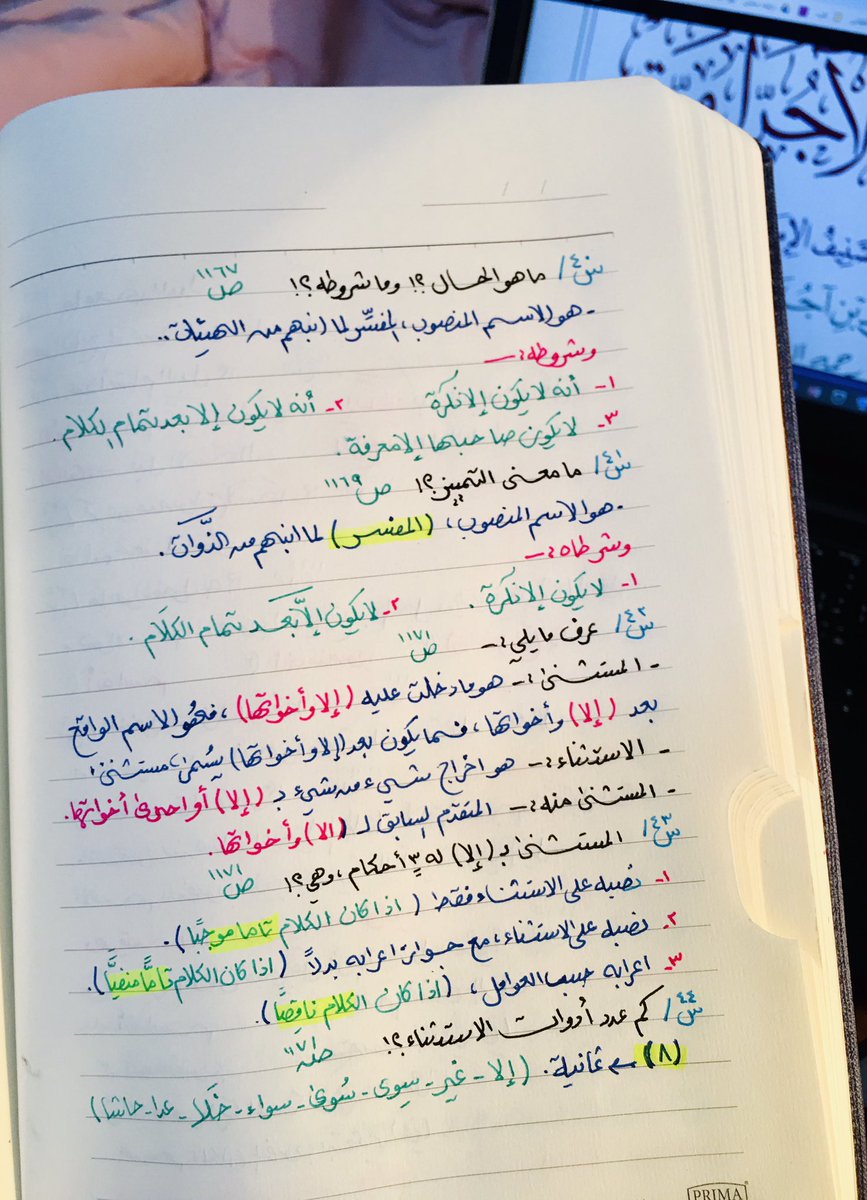 س٤٠/ ما هو الحال؟! وما شروطه؟! ص ١١٦٧
- هو الاسم المنصوب، المفسِّر لما انبهم من الهيئات..
وشروطه:-
١- أنه لا يكون إلا نكرة ٢- أنه لا يكون إلا بعد تمام الكلام.
٣- لا يكون صاحبها إلا معرفة.
س٤١/ ما معنى التمييز؟! ص ١١٦٩
- هو الاسم المنصوب، (المفسر) لما انبهم من الذَّوات.
وشرطاه:-
١- لا يكون إلا نكرة. ٢- لا يكون إلَّا بعد تمام الكلام.
س٤٢/ عرف ما يلي:- ص ١١٧١
- المستثنى:- هو ما دخلت عليه (إلا وأخواتها)، فهو الاسم الواقع
بعد (إلا) وأخواتها، فما يكون بعد (إلا وأخواتها) يُسمى مستثنى
- الاستثناء:- هو اخراج شيء من شيء بـ (إلا) أو احدى أخواتها.
- المستثنى منه:- المتقدم السابق لـ (الا) وأخواتها.
س٤٣/ المستثنى بـ (إلا) له ٣ أحكام، وهي؟! ص ١١٧١
١- نصبه على الاستثناء فقط (اذا كان الكلام تاما موجبًا).
٢- نصبه على الاستثناء، مع جواز اعرابه بدلاً (اذا كان الكلام تامًّا منفيًّا).
٣- اعرابه حسب العوامل، (اذا كان الكلام ناقصًا).
س٤٤/ كم عدد أدوات الاستثناء؟!
(٨) ثمانية. (إلا - غير - سِوى - سُوى - سواء - خَلا - عدا - حاشا)
PRIMA